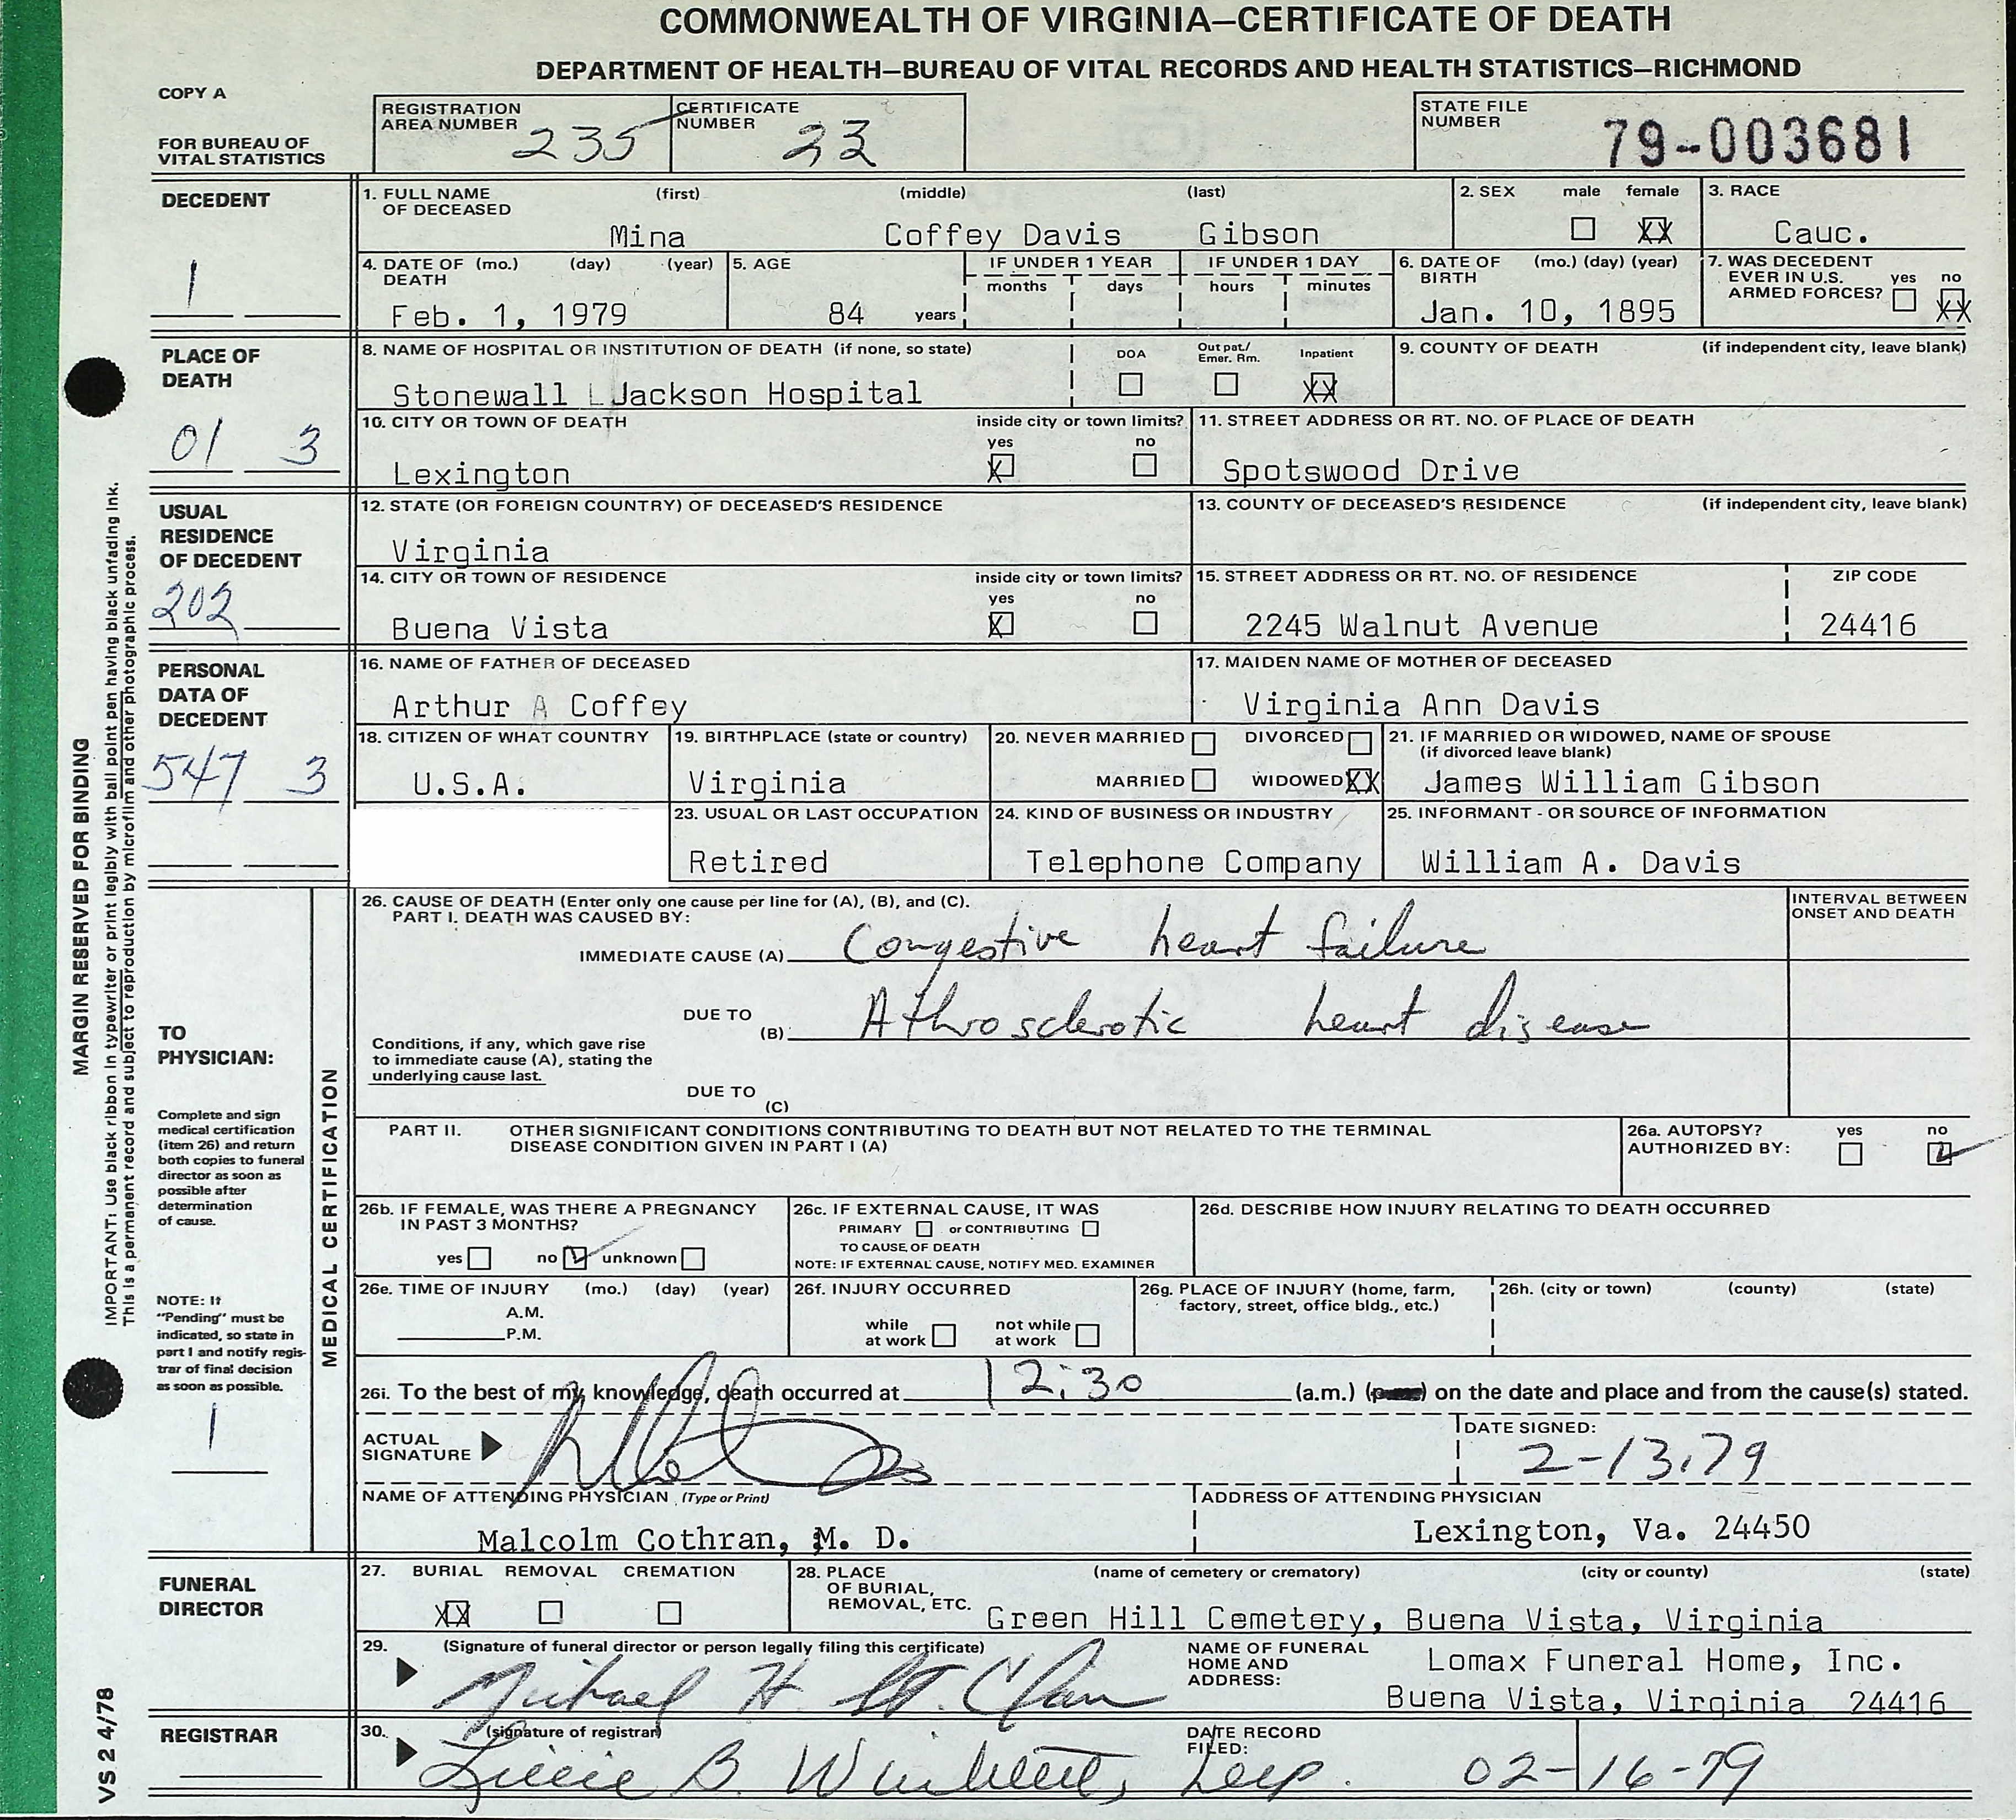 COMMONWEALTH OF VIRGINIA—CERTIFICATE OF DEATH
DEPARTMENT OF HEALTH—BUREAU OF VITAL RECORDS AND HEALTH STATISTICS—RICHMOND
COPY A
FOR BUREAU OF
VITAL STATISTICS
REGISTRATION
AREA NUMBER 235
CERTIFICATE
NUMBER 23
STATE FILE
NUMBER 79-003681
DECEDENT
1
1. FULL NAME (first) (middle) (last)
OF DECEASED
Mina Coffey Davis Gibson
2. SEX male female
XX
3. RACE
Cauc.
4. DATE OF (mo.) (day) (year)
DEATH
Feb. 1, 1979
5. AGE
84 years
IF UNDER 1 YEAR
months days
IF UNDER 1 DAY
hours minutes
6. DATE OF (mo.) (day) (year)
BIRTH
Jan. 10, 1895
7. WAS DECEDENT
EVER IN U.S. yes no
ARMED FORCES?
XX
PLACE OF
DEATH
01 3
8. NAME OF HOSPITAL OR INSTITUTION OF DEATH (if none, so state)
Stonewall Jackson Hospital
DOA Out pat./ Inpatient
Emer. Rm.
XX
9. COUNTY OF DEATH (if independent city, leave blank)
10. CITY OR TOWN OF DEATH inside city or town limits?
yes no
Lexington X
11. STREET ADDRESS OR RT. NO. OF PLACE OF DEATH
Spotswood Drive
USUAL
RESIDENCE
OF DECEDENT
202
12. STATE (OR FOREIGN COUNTRY) OF DECEASED'S RESIDENCE
Virginia
13. COUNTY OF DECEASED'S RESIDENCE (if independent city, leave blank)
14. CITY OR TOWN OF RESIDENCE inside city or town limits?
yes no
Buena Vista X
15. STREET ADDRESS OR RT. NO. OF RESIDENCE ZIP CODE
2245 Walnut Avenue 24416
PERSONAL
DATA OF
DECEDENT
547 3
16. NAME OF FATHER OF DECEASED
Arthur A Coffey
17. MAIDEN NAME OF MOTHER OF DECEASED
Virginia Ann Davis
18. CITIZEN OF WHAT COUNTRY
U.S.A.
19. BIRTHPLACE (state or country)
Virginia
20. NEVER MARRIED DIVORCED
MARRIED WIDOWED XX
21. IF MARRIED OR WIDOWED, NAME OF SPOUSE
(if divorced leave blank)
James William Gibson
23. USUAL OR LAST OCCUPATION
Retired
24. KIND OF BUSINESS OR INDUSTRY
Telephone Company
25. INFORMANT - OR SOURCE OF INFORMATION
William A. Davis
MARGIN RESERVED FOR BINDING
IMPORTANT: Use black ribbon in typewriter or print legibly with ball point pen having black unfading ink.
This is a permanent record and subject to reproduction by microfilm and other photographic process.
VS 2 4/78
TO
PHYSICIAN:
Complete and sign
medical certification
(item 26) and return
both copies to funeral
director as soon as
possible after
determination
of cause.
NOTE: If
"Pending" must be
indicated, so state in
part I and notify regis-
trar of final decision
as soon as possible.
1
MEDICAL CERTIFICATION
26. CAUSE OF DEATH (Enter only one cause per line for (A), (B), and (C).
PART I. DEATH WAS CAUSED BY:
INTERVAL BETWEEN
ONSET AND DEATH
IMMEDIATE CAUSE (A) Congestive heart failure
DUE TO
(B) Athrosclerotic heart disease
Conditions, if any, which gave rise
to immediate cause (A), stating the
underlying cause last.
DUE TO
(C)
PART II. OTHER SIGNIFICANT CONDITIONS CONTRIBUTING TO DEATH BUT NOT RELATED TO THE TERMINAL
DISEASE CONDITION GIVEN IN PART I (A)
26a. AUTOPSY? yes no
AUTHORIZED BY:
26b. IF FEMALE, WAS THERE A PREGNANCY
IN PAST 3 MONTHS?
yes no unknown
26c. IF EXTERNAL CAUSE, IT WAS
PRIMARY or CONTRIBUTING
TO CAUSE OF DEATH
NOTE: IF EXTERNAL CAUSE, NOTIFY MED. EXAMINER
26d. DESCRIBE HOW INJURY RELATING TO DEATH OCCURRED
26e. TIME OF INJURY (mo.) (day) (year)
A.M.
P.M.
26f. INJURY OCCURRED
while not while
at work at work
26g. PLACE OF INJURY (home, farm,
factory, street, office bldg., etc.)
26h. (city or town) (county) (state)
26i. To the best of my knowledge, death occurred at 12:30 (a.m.) on the date and place and from the cause(s) stated.
ACTUAL
SIGNATURE
DATE SIGNED:
2-13-79
NAME OF ATTENDING PHYSICIAN (Type or Print)
Malcolm Cothran, M. D.
ADDRESS OF ATTENDING PHYSICIAN
Lexington, Va. 24450
FUNERAL
DIRECTOR
27. BURIAL REMOVAL CREMATION
XX
28. PLACE (name of cemetery or crematory) (city or county) (state)
OF BURIAL,
REMOVAL, ETC.
Green Hill Cemetery, Buena Vista, Virginia
29. (Signature of funeral director or person legally filing this certificate)
Michael H. St. Clair
NAME OF FUNERAL
HOME AND
ADDRESS:
Lomax Funeral Home, Inc.
Buena Vista, Virginia 24416
REGISTRAR
30. (signature of registrar)
B. Dep.
DATE RECORD
FILED:
02-16-79